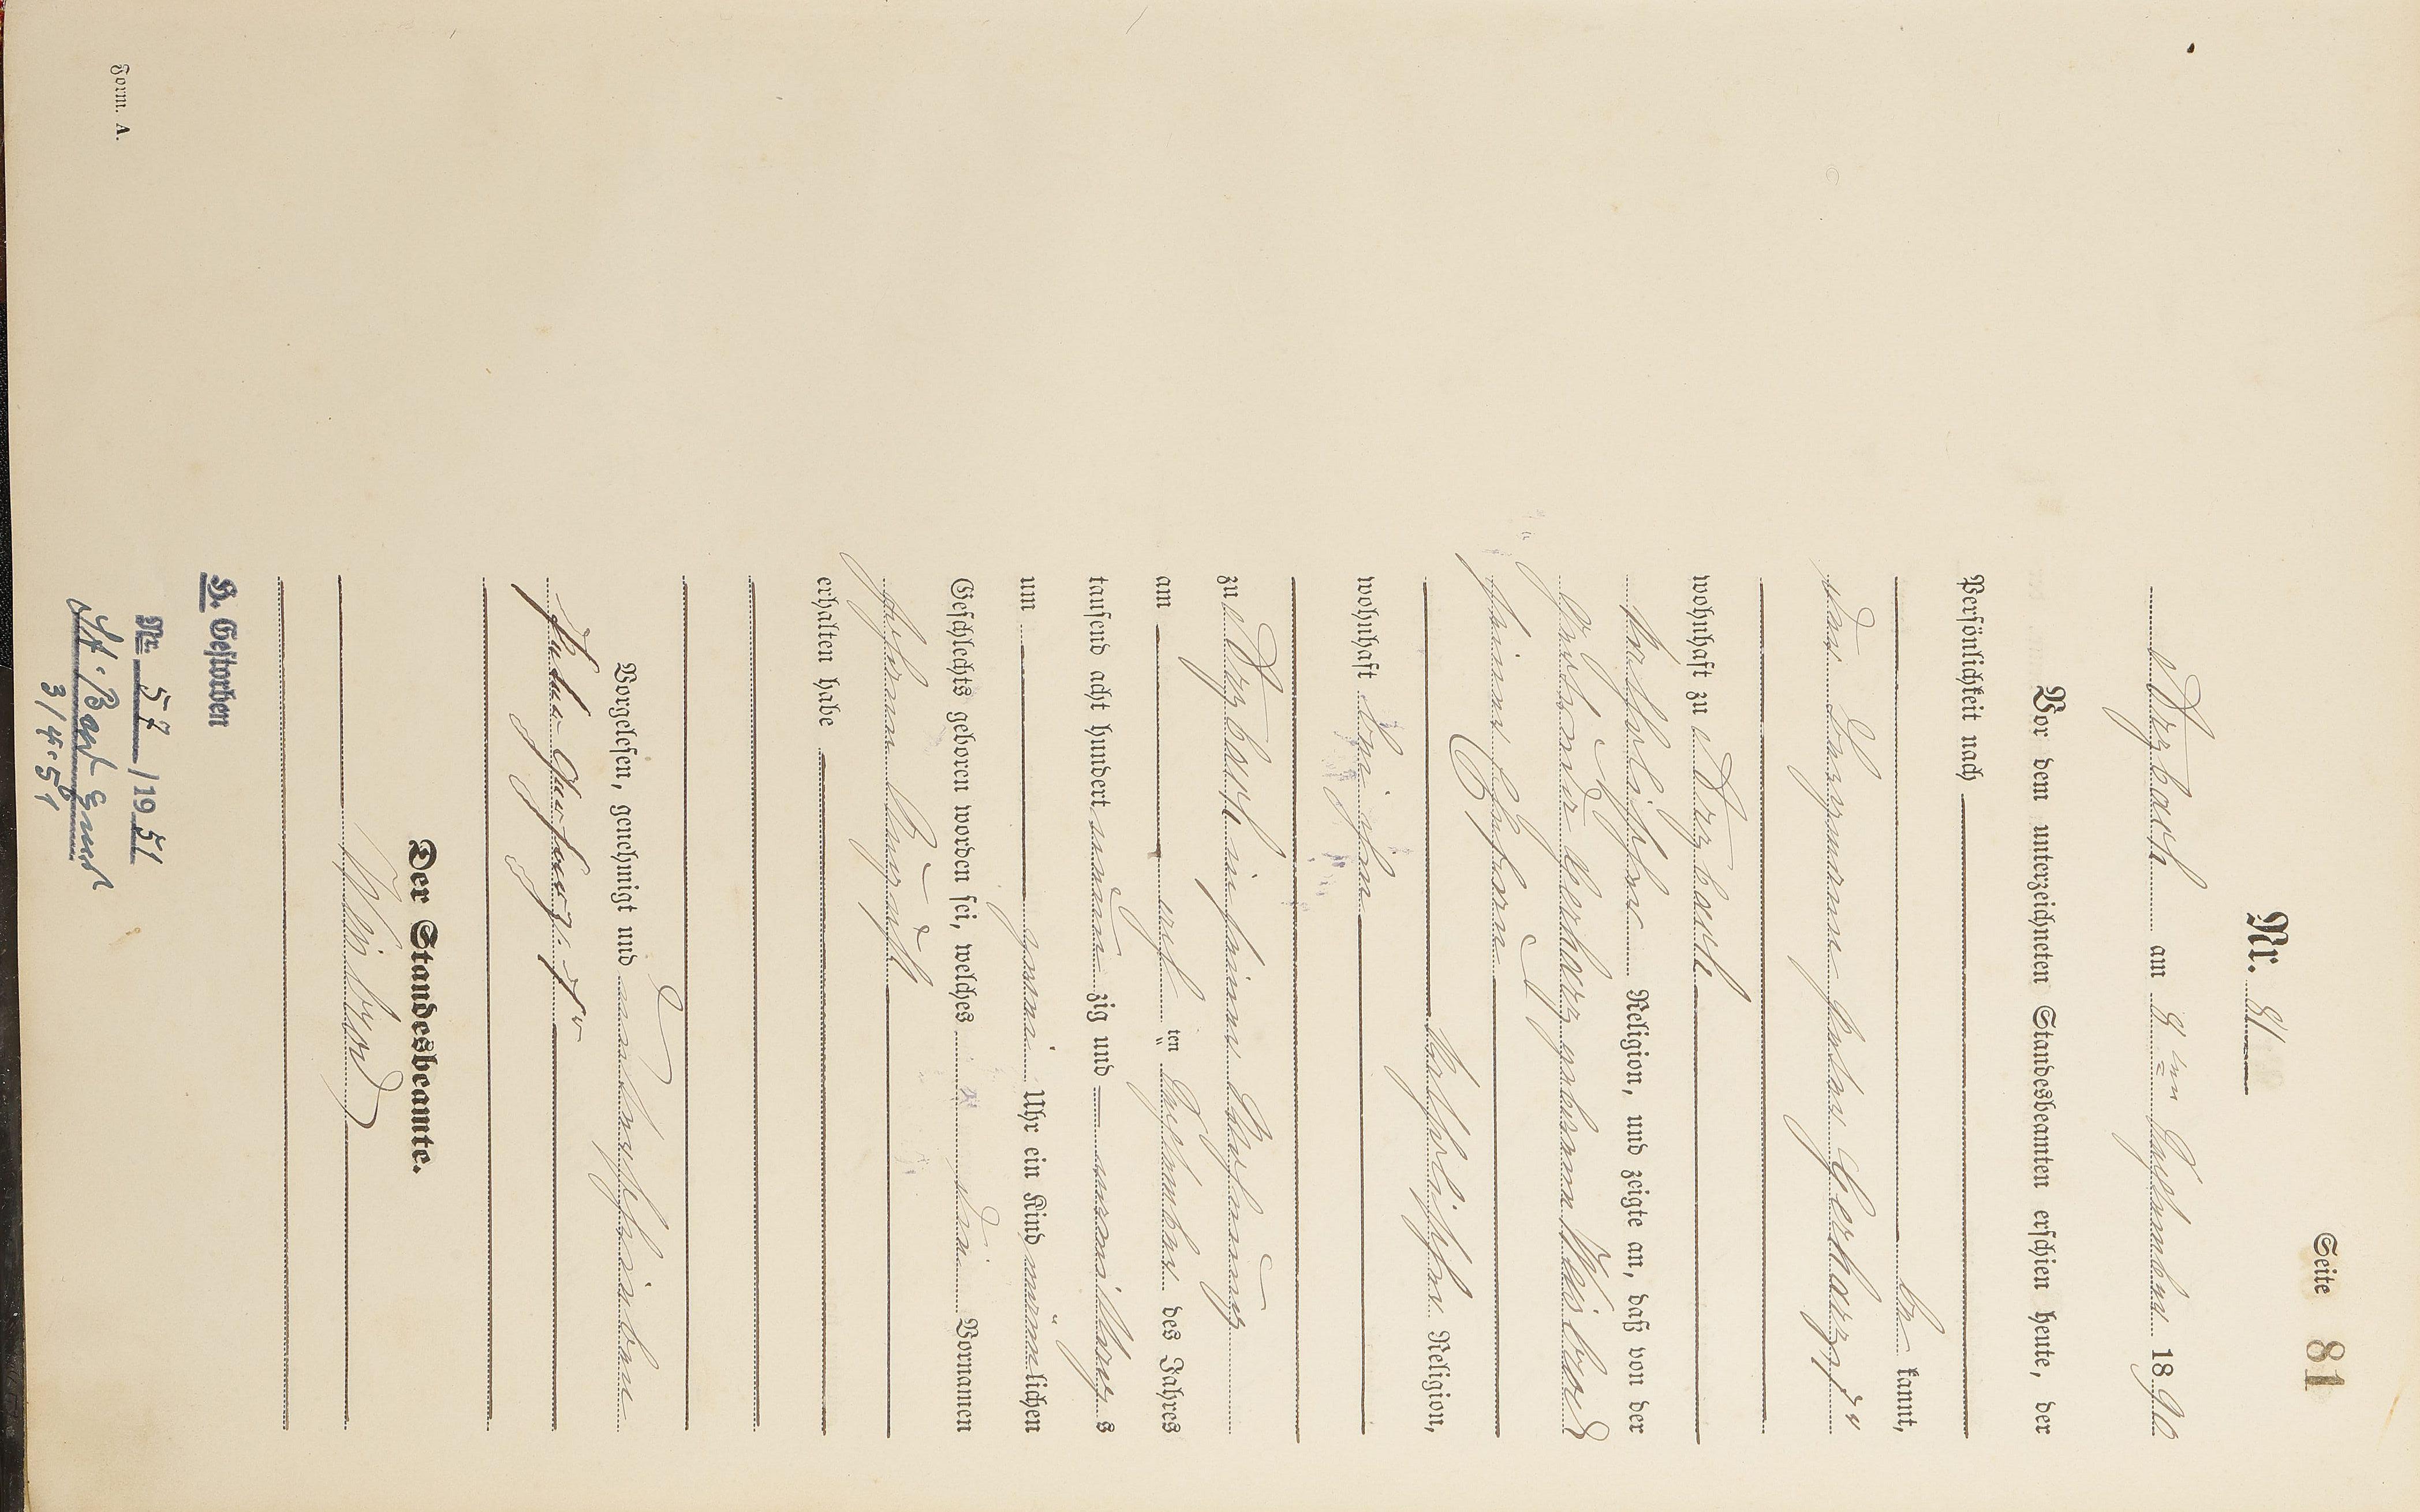 Seite 81
Nr. 81
Arzbach am 8ten September 1890
Vor dem unterzeichneten Standesbeamten erschien heute, der
Persönlichkeit nach
be kannt,
der Bergmann Peter Gerharz, 7r
wohnhaft zu Arzbach
katholischer Religion, und zeigte an, daß von der
Gerharz geborenen
seiner Ehefrau
katholischer Religion,
wohnhaft bei ihm
zu Arzbach in seiner Wohnung
am acht ten September des Jahres
tausend acht hundert neun zig und nachmittags
um zwei Uhr ein Kind männlichen
Geschlechts geboren worden sei, welches die Vornamen
Johann August
erhalten habe
Vorgelesen, genehmigt und unterschrieben
Peter Gerharz. 7r
Der Standesbeamte.
H. Gestorben
Nr. 57 /1951
St. Bad Ems
3/4.51
Form. A.